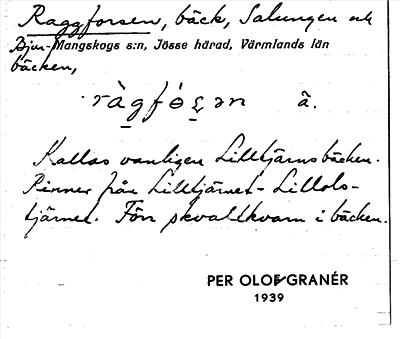 Raggforsen, bäck, Salungen och
Bjur- Mangskogs s:n, Jösse härad, Värmlands län
bäcken,
ràgfós̨ən ä.
Kallas vanligen Lilltjärnsbäcken.
Rinner från Lilltjärnet - Lillols-
tjärnet. Förr skvaltkvarn i bäcken.
PER OLOF GRANÉR
1939